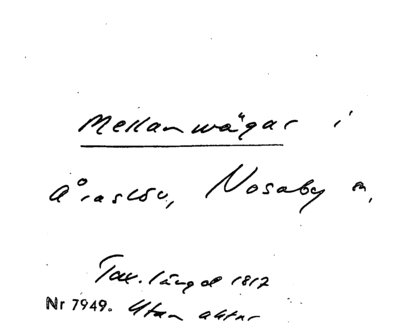 Mellanwägar i
Åraslöv, Nosaby sn,
Tax. längd 1812
Nr 7949. Utan aktnr